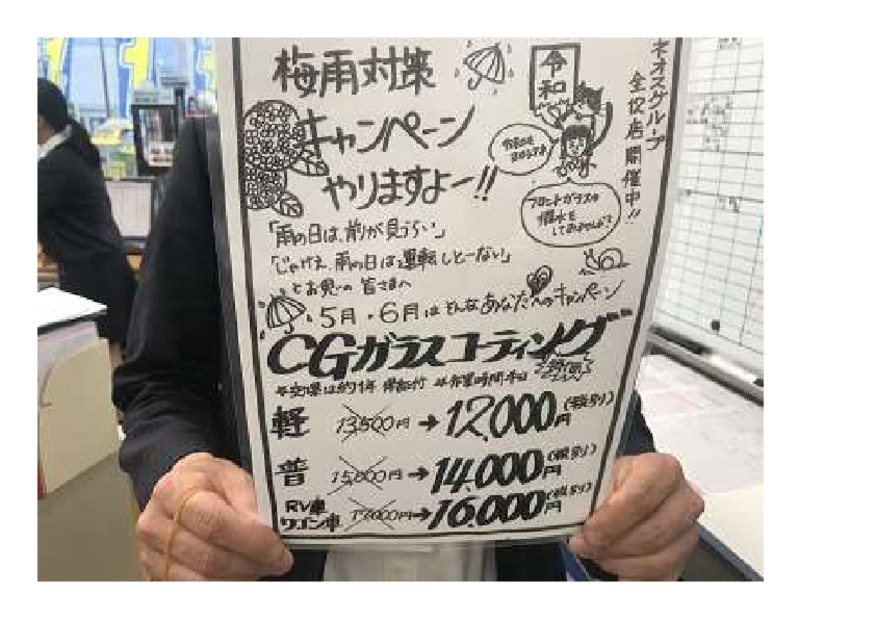 梅雨対策
キャンペーン
やりますよー!!
令和
ネオスグループ
全店開催中!!
フロントガラスの
撥水を
してみませんか?
「雨の日は、前が見づらい」
「じゃけぇ、雨の日は運転しとーない」
とお思いの皆さまへ
5月・6月はそんなあなたへのキャンペーン
CGガラスコーティング
軽 13,500円→12,000円(税別)
普 15,000円→14,000円(税別)
RV車
ワゴン車 17,000円→16,000円(税別)